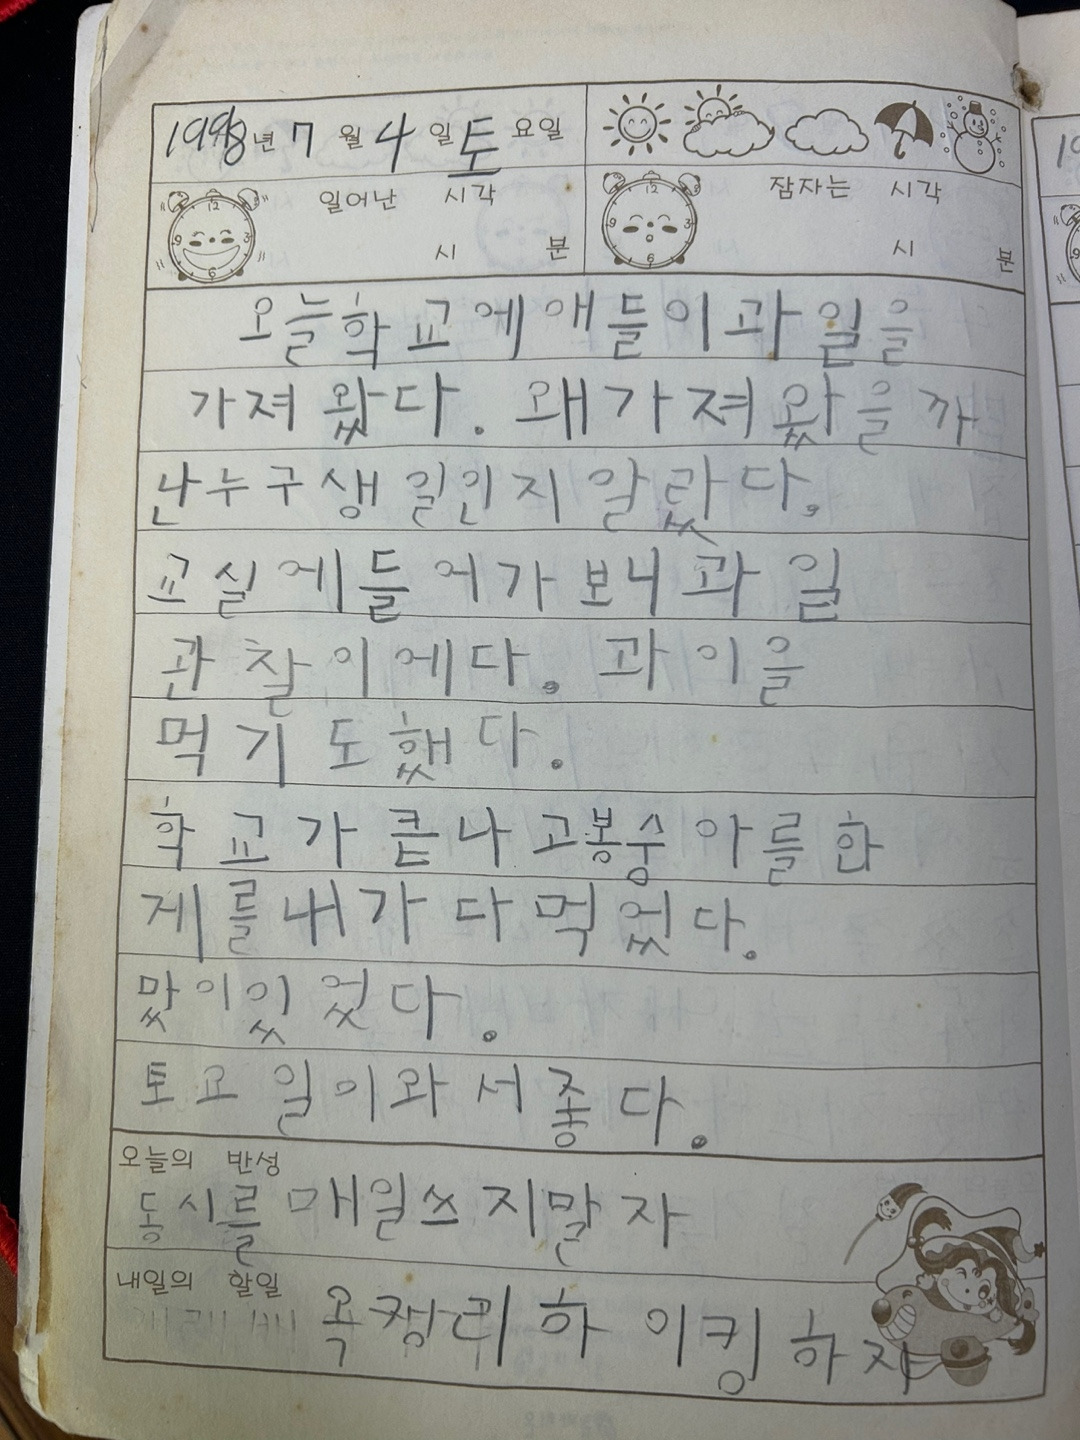 1998년 7월 4일 토요일
일어난 시각
시 분
잠자는 시각
시 분
오늘학교에애들이과일을
가져왔다. 왜가져왔을까
난누구생일인지알랐다.
교실에들어가보니과일
관찰이에다. 과이을
먹기도했다.
학교가끝나고봉숭아를한
게를내가다먹었다.
맜이있었다.
토요일이와서좋다.
오늘의 반성
동시를 매일쓰지말자
내일의 할일
하이킹하자